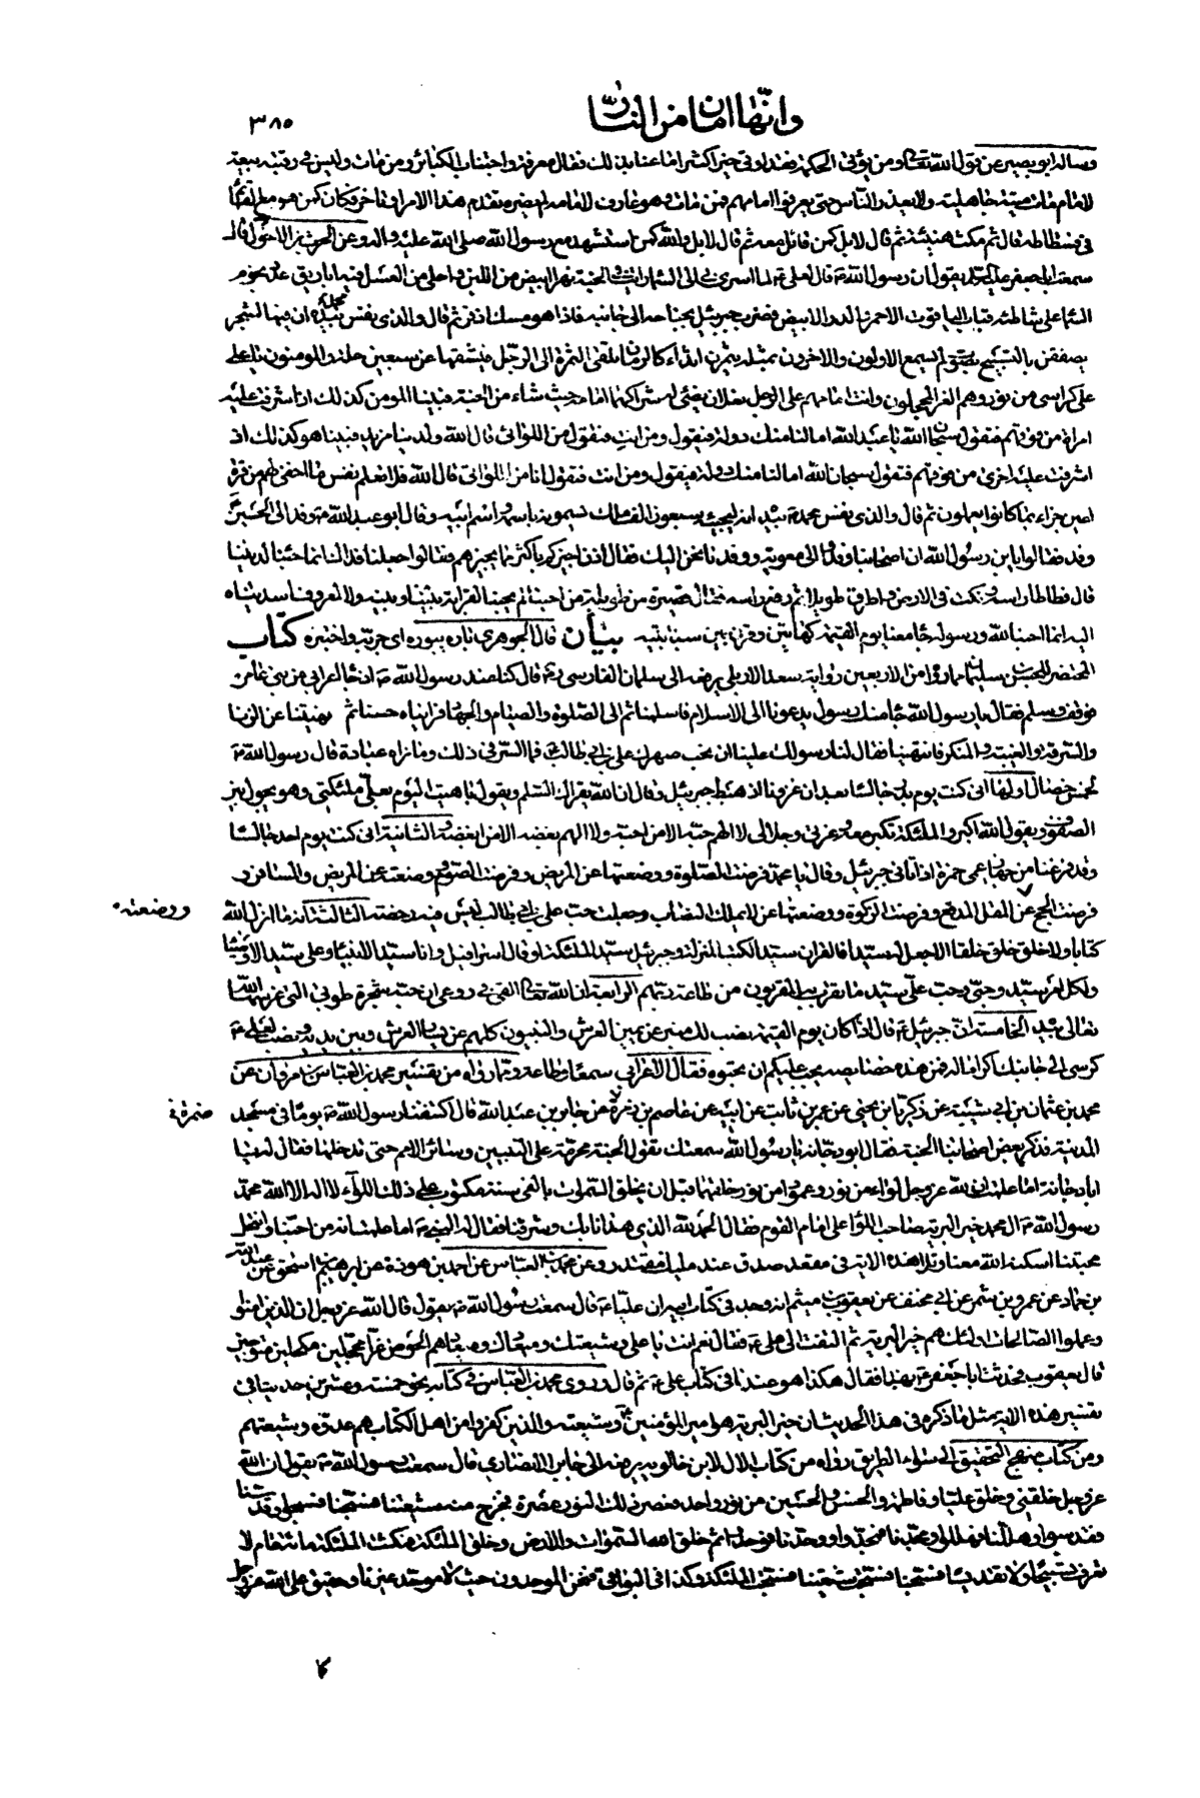 وانّها امان من النّار
٣٨٥
وساله ابو بصير عن قول الله تعالى ومن يؤتى الحكمة فقد اوتى خيرا كثيرا ما عنا بذلك فقال معرفة واجتناب الكبائر ومن مات وليس فى رقبته بيعة
لامام مات ميتة جاهلية ولا يعذر الناس حتى يعرفوا امامهم فمن مات وهو عارف لامامه لم يضره تقدم هذا الامر او تاخر وكان كمن هو مع القائم
فى فسطاطه قال ثم مكث هنيئة ثم قال لا بل كمن قاتل معه ثم قال لا بل والله كمن استشهد مع رسول الله صلى الله عليه واله وعن الحرث بن الاحول قال
سمعت ابا جعفر عليه السلام يقول ان رسول الله ص قال لعلى ع لما اسرى بى الى السماء رايت فى الجنة نهرا ابيض من اللبن واحلى من العسل فيه اباريق عدد نجوم
السماء على شاطئه قباب الياقوت الاحمر والدر الابيض فضرب جبرئيل بجناحه الى جانبه فاذا هو مسك اذفر ثم قال والذى نفس محمد بيده ان فيها لشجر
يصفقن بالتسبيح بصوت لم يسمع الاولون والاخرون بمثله يثمرن اثداء كالرمان يلقى الثمرة الى الرجل فيشقها عن سبعين حلة والمومنون يا على
على كراسى من نور وهم الغر المحجلون وانت امامهم على الرجل نعلان يضئ له شراكهما امامه حيث شاء من الجنة فبينا المومن كذلك اذ اشرفت عليه
امراة من فوقهم فتقول سبحان الله يا عبد الله اما لنا منك دولة فيقول ومن انت فتقول من اللواتى قال الله ولدينا مزيد فبينا هو كذلك اذ
اشرفت عليه اخرى من فوقهم فتقول سبحان الله اما لنا منك دولة فيقول ومن انت فتقول انا من اللواتى قال الله فلا تعلم نفس ما اخفى لهم من قرة
اعين جزاء بما كانوا يعملون ثم قال والذى نفس محمد ص بيده انه ليجيئه سبعون الف ملك يسمونه باسمه واسم ابيه وقال ابو عبد الله ع وفد الى الحسين ع
وفد فقالوا يا بن رسول الله ان اصحابنا وفدوا الى معوية ووفدنا نحن اليك فقال اذن اجيزكم باكثر مما يجيزهم فقالوا جعلنا فداك انما جئنا لديننا
قال فطاطا راسه ونكت فى الارض واطرق طويلا ثم رفع راسه فقال قصيرة من طويلة من احبنا لم يحبنا لقرابة بيننا وبينه ولا لمعروف اسديناه
اليه انما احبنا لله ورسوله جاء معنا يوم القيمة كهاتين وقرن بين سبابتيه بيان قال الجوهرى باره يبوره اى جربه واختبره كتاب
المحتضر للحسن بن سليمان مما رواه من الاربعين رواية سعد الاربلى يرفعه الى سلمان الفارسى ره قال كنا عند رسول الله ص اذ جاء اعرابى من بنى عامر
فوقف وسلم فقال يا رسول الله جاء منك رسول يدعونا الى الاسلام فاسلمنا ثم الى الصلوة والصيام والجهاد فرايناه حسنا ثم نهيتنا عن الزنا
والسرقة والغيبة والمنكر فانتهينا فقال لنا رسولك علينا ان نحب صهرك على بن ابى طالب ع فما السر فى ذلك وما نراه عبادة قال رسول الله ص
لخمس خصال اولها انى كنت يوم بدر جالسا بعد ان غزونا اذ هبط جبرئيل وقال ان الله يقرئك السلم ويقول باهيت اليوم بعلى ملئكتى وهو يجول بين
الصفوف ويقول الله اكبر والملئكة تكبر معه وعزتى وجلالى لا الهم حبه الا من احبه ولا الهم بغضه الا من ابغضه والثانية انى كنت يوم احد جالسا
وقد فرغنا من جهاز عمى حمزة اذ اتانى جبرئيل وقال يا محمد فرضت الصلوة ووضعتها عن المريض وفرضت الصوم ووضعته عن المريض والمسافر و
فرضت الحج عن المقل المدقع وفرضت الزكوة ووضعتها عن لا يملك النصاب وجعلت حب على بن ابى طالب ليس فيه رخصة الثالثة انه ما انزل الله
ووضعته
كتابا ولا خلق خلقا الا جعل له سيدا فالقران سيد الكتب المنزلة وجبرئيل سيد الملئكة او قال اسرافيل وانا سيد الانبياء وعلى سيد الاوصياء
ولكل امر سيد وحبى وحب على سيد ما تقرب به المتقربون من طاعة ربهم الرابعة ان الله تعالى القى فى روعى ان حبه شجرة طوبى التى غرسها الله
تعالى بيده الخامسة ان جبرئيل ع قال اذا كان يوم القيمة نصب لك منبر عن يمين العرش والنبيون كلهم عن يسار العرش وبين يديه ونصب لعلى ع
كرسى الى جانبك اكراما له فمن هذه خصايصه يجب عليكم ان تحبوه فقال الاعرابى سمعا وطاعة ومما رواه من تفسير محمد بن العباس بن مروان عن
محمد بن عثمان بن ابى شيبة عن زكريا بن يحيى عن عمر بن ثابت عن ابيه عن عاصم بن ضمرة عن جابر بن عبد الله قال اكتنفنا رسول الله ص يوما فى مسجد
ضمرة
المدينة فذكر بعض اصحابنا الجنة فقال ابو دجانة يا رسول الله سمعتك تقول الجنة محرمة على النبيين وسائر الامم حتى تدخلها فقال له يا
ابا دجانة اما علمت ان لله عز وجل لواء من نور وعمودا من نور خلقهما قبل ان يخلق السموات بالفى سنة مكتوب على ذلك اللواء لا اله الا الله محمد
رسول الله ص ال محمد خير البرية صاحب اللواء على امام القوم فقال الحمد لله الذى هدانا بك وشرفنا فقال له النبى ص اما علمت انه من احبنا وانتحل
محبتنا اسكنه الله معنا وتلا هذه الاية فى مقعد صدق عند مليك مقتدر وعن محمد بن العباس عن احمد بن هوذة عن ابرهيم بن اسحق عن عبد الله
بن حماد عن عمرو بن شمر عن ابى مخنف عن يعقوب بن ميثم انه وجد فى كتاب ابيه ان عليا ع قال سمعت رسول الله ص يقول قال الله عز وجل ان الذين امنوا
وعملوا الصالحات اولئك هم خير البرية ثم التفت الى على ع فقال نعم انت يا على وشيعتك وميعادك وميعادهم الحوض غرا محجلين مكحلين متوجين
قال يعقوب فحدثت ابا جعفر ع بهذا فقال هكذا هو عندنا فى كتاب على ع ثم قال وروى محمد بن العباس فى كتابه نحو خمسة وعشرين حديثا فى
تفسير هذه الاية بمثل ما ذكره فى هذا الحديث ان خير البرية هو امير المؤمنين ع وشيعته والذين كفروا من اهل الكتاب هم عدوه وشيعتهم
ومن كتاب منهج التحقيق الى سواء الطريق رواه من كتاب الال لابن خالويه يرفعه الى جابر الانصارى قال سمعت رسول الله ص يقول ان الله
عز وجل خلقنى وخلق عليا وفاطمة والحسن والحسين من نور واحد فعصر ذلك النور عصرة فخرج منه شيعتنا فسبحنا فسبحوا وقدسنا
فقدسوا وهللنا فهللوا ومجدنا فمجدوا ووحدنا فوحدوا ثم خلق الله السموات والارض وخلق الملئكة فمكثت الملئكة مائة عام لا
تعرف تسبيحا ولا تقديسا فسبحنا فسبحت شيعتنا فسبحت الملئكة وكذا فى البواقى فنحن الموحدون حيث لا موحد غيرنا وحقيق على الله عز وجل
كما